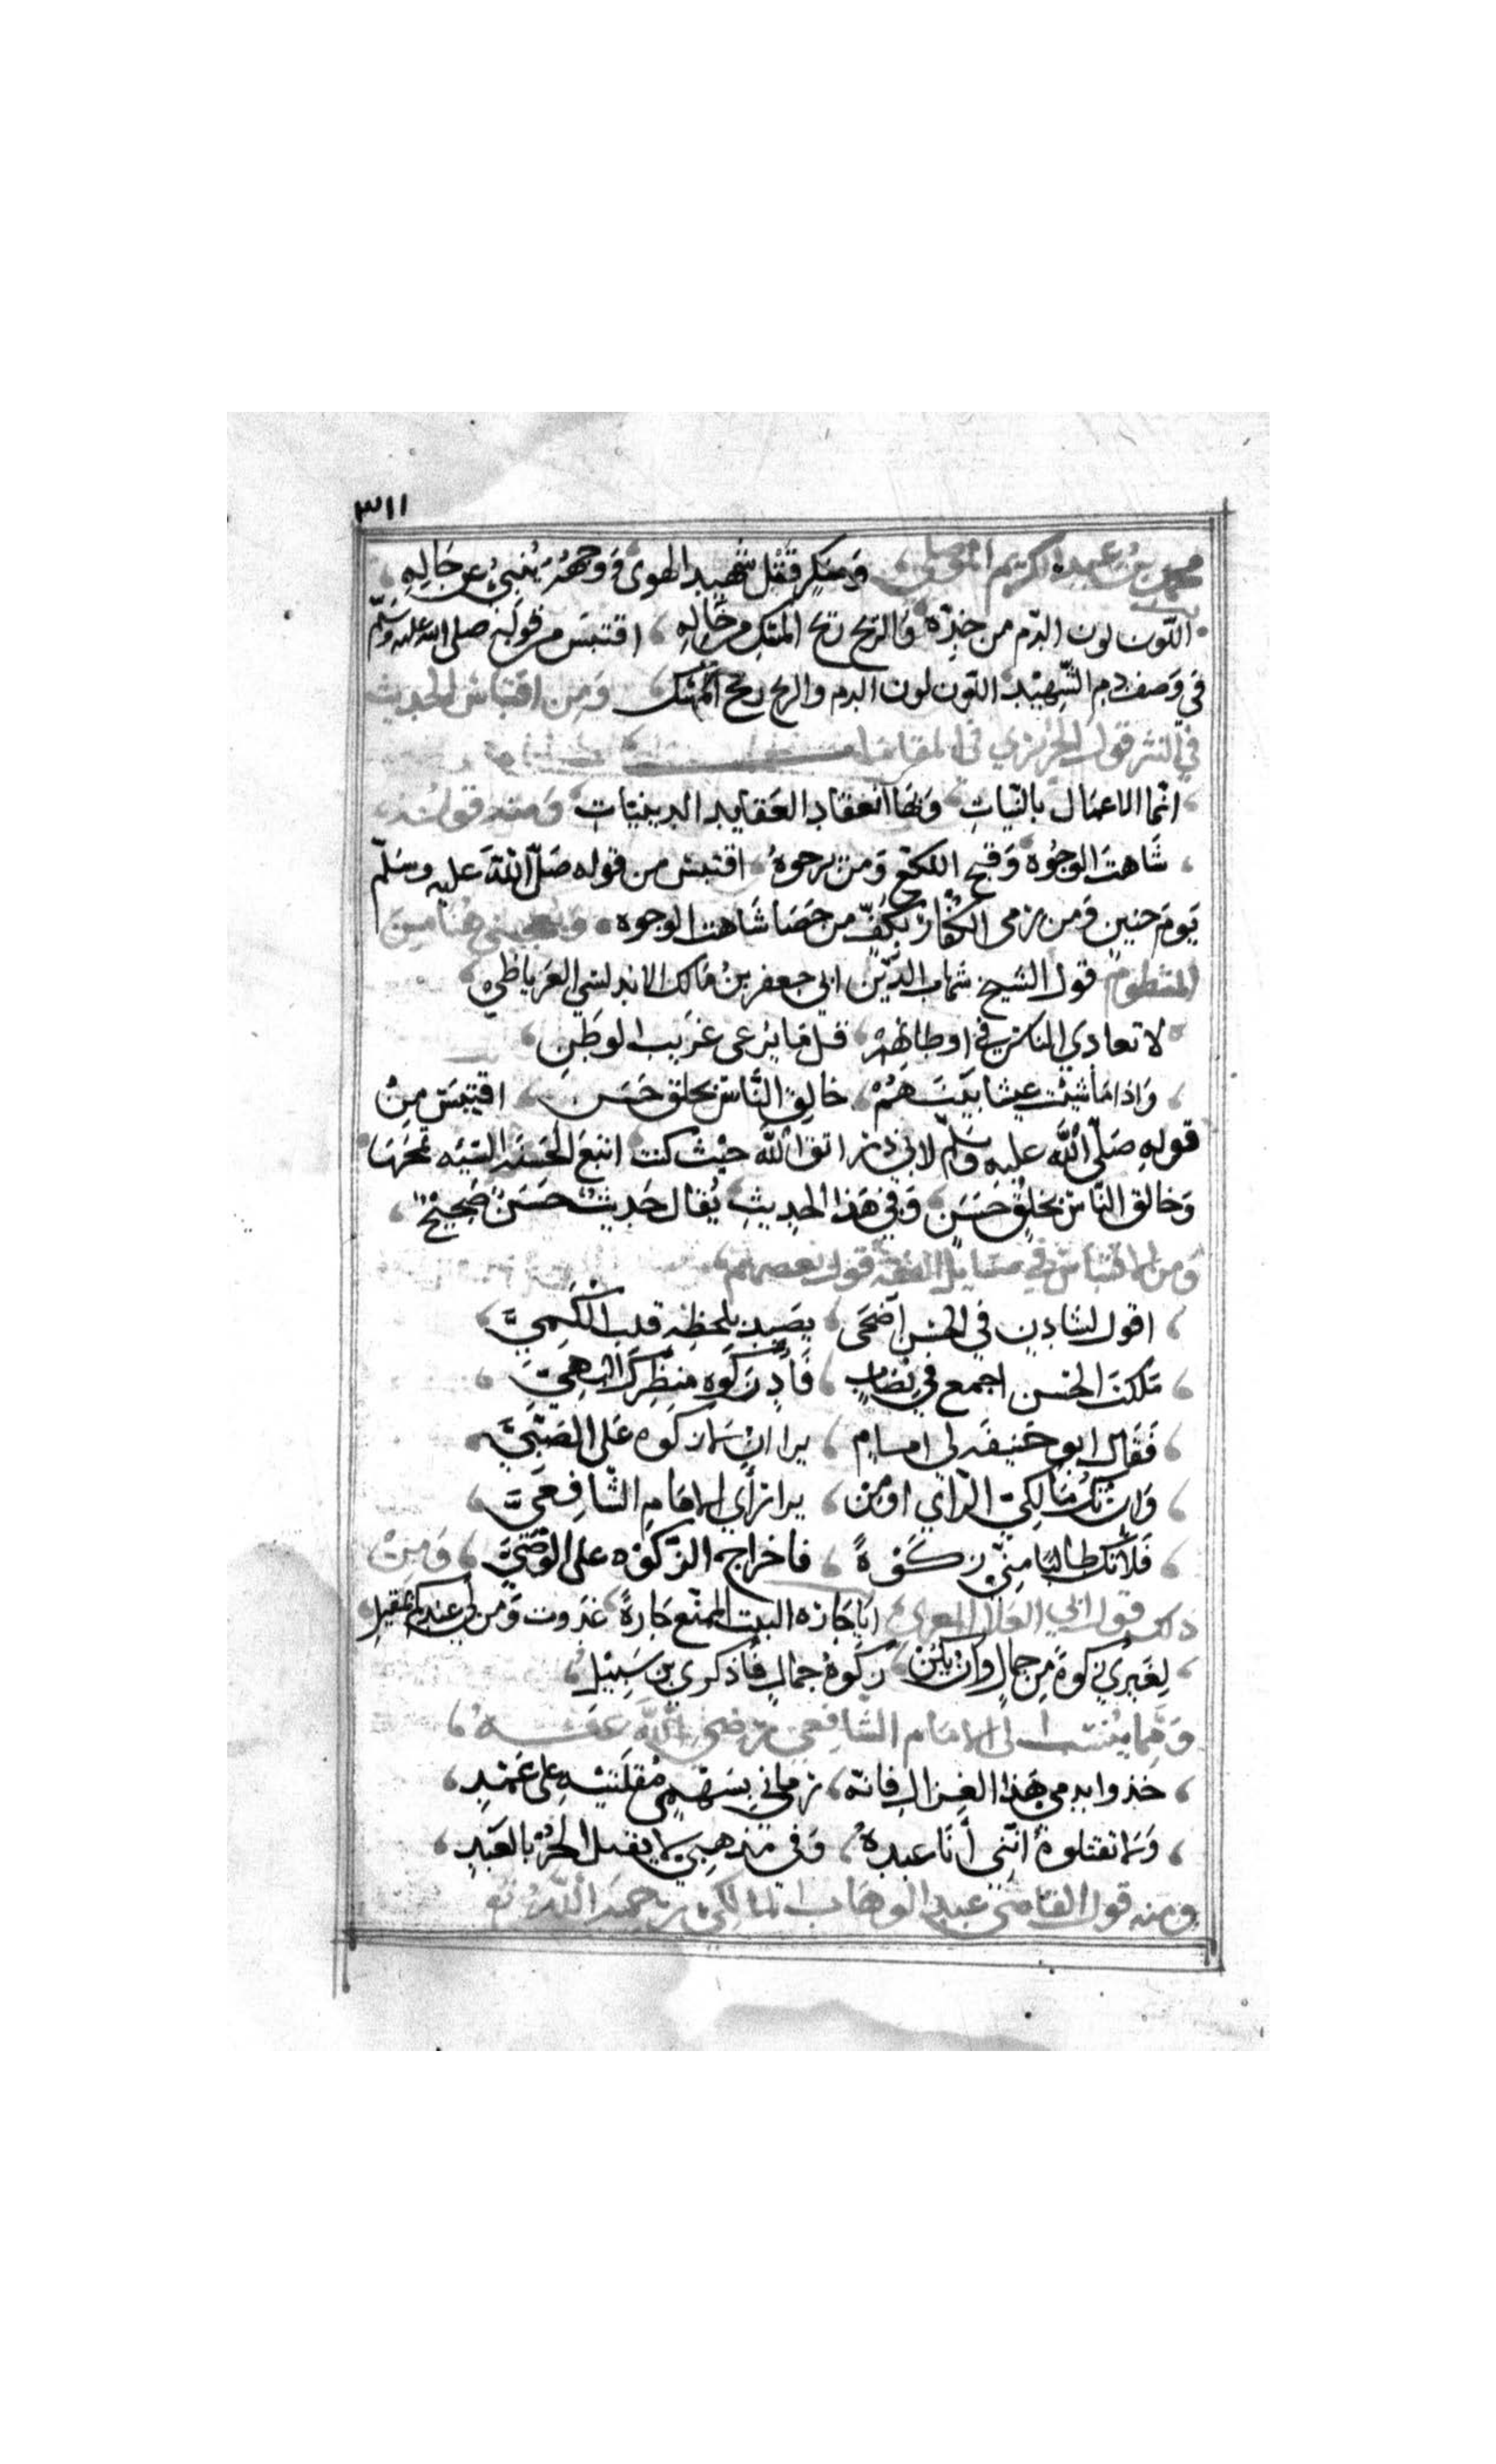 ٣١١
محمد بن عبد الكريم الموصلي ومنكر قتل شهيد الهوى ووجهه ينبئ عن حاله
اللون لون الدم من خده والريح ريح المسك من خاله اقتبس من قوله صلى الله عليه وسلم
في وصف دم الشهيد اللون لون الدم والريح ريح المسك ومن اقتباس الحديث
في النثر قول الحريري في المقامات
انما الاعمال بالنيات وبها انعقاد العقايد الدينيات ومنه قوله
شاهت الوجوه وقبح اللكع ومن يرجوه اقتبس من قوله صلى الله عليه وسلم
يوم حنين ومن رمى الكفار بكف من حصا شاهت الوجوه ويعجبني هنا من
المنظوم قول الشيخ شهاب الدين ابي جعفر بن مالك الاندلسي الغرناطي
لا تعادي الناس في اوطانهم قل ما يرعى غريب الوطن
واذا ما شئت عيشا بينهم خالق الناس بخلق حسن اقتبس من
قوله صلى الله عليه وسلم لابي ذر اتق الله حيث كنت اتبع الحسنه السيه تمحها
وخالق الناس بخلق حسن وفي هذا الحديث يقال حديث حسن صحيح
ومن الاقتباس في مسايل الفقه قول بعضهم
اقول لشادن في الحسن اضحى يصيد بلحظه قلب الكمي
ملكت الحسن اجمع في نصاب فأد زكوه منظرك البهي
فقال ابو حنيفه لي امام يرا ان لا زكوه على الصبي
وان تك مالكي الراي او من يرا راي الامام الشافعي
فلا تك طالبا مني زكوةً فاخراج الزكوه على الوصي ومن
ذلك قول ابي العلا المعري ايا جاره البيت الممنع جاره غدوت ومن لي عندكم بمقيل
لغيري زكوة من جمال وان تكن زكوة جمال فاذكري بن سبيل
ومما ينسب الى الامام الشافعي رضي الله عنه
خذوا بدمي هذا الغزال فانه رماني بسهمي مقلتيه على عمد
ولا تقتلوه انني أنا عبده وفي مذهبي لا يقتل الحر بالعبد
ومنه قول القاضي عبد الوهاب المالكي رحمه الله تع